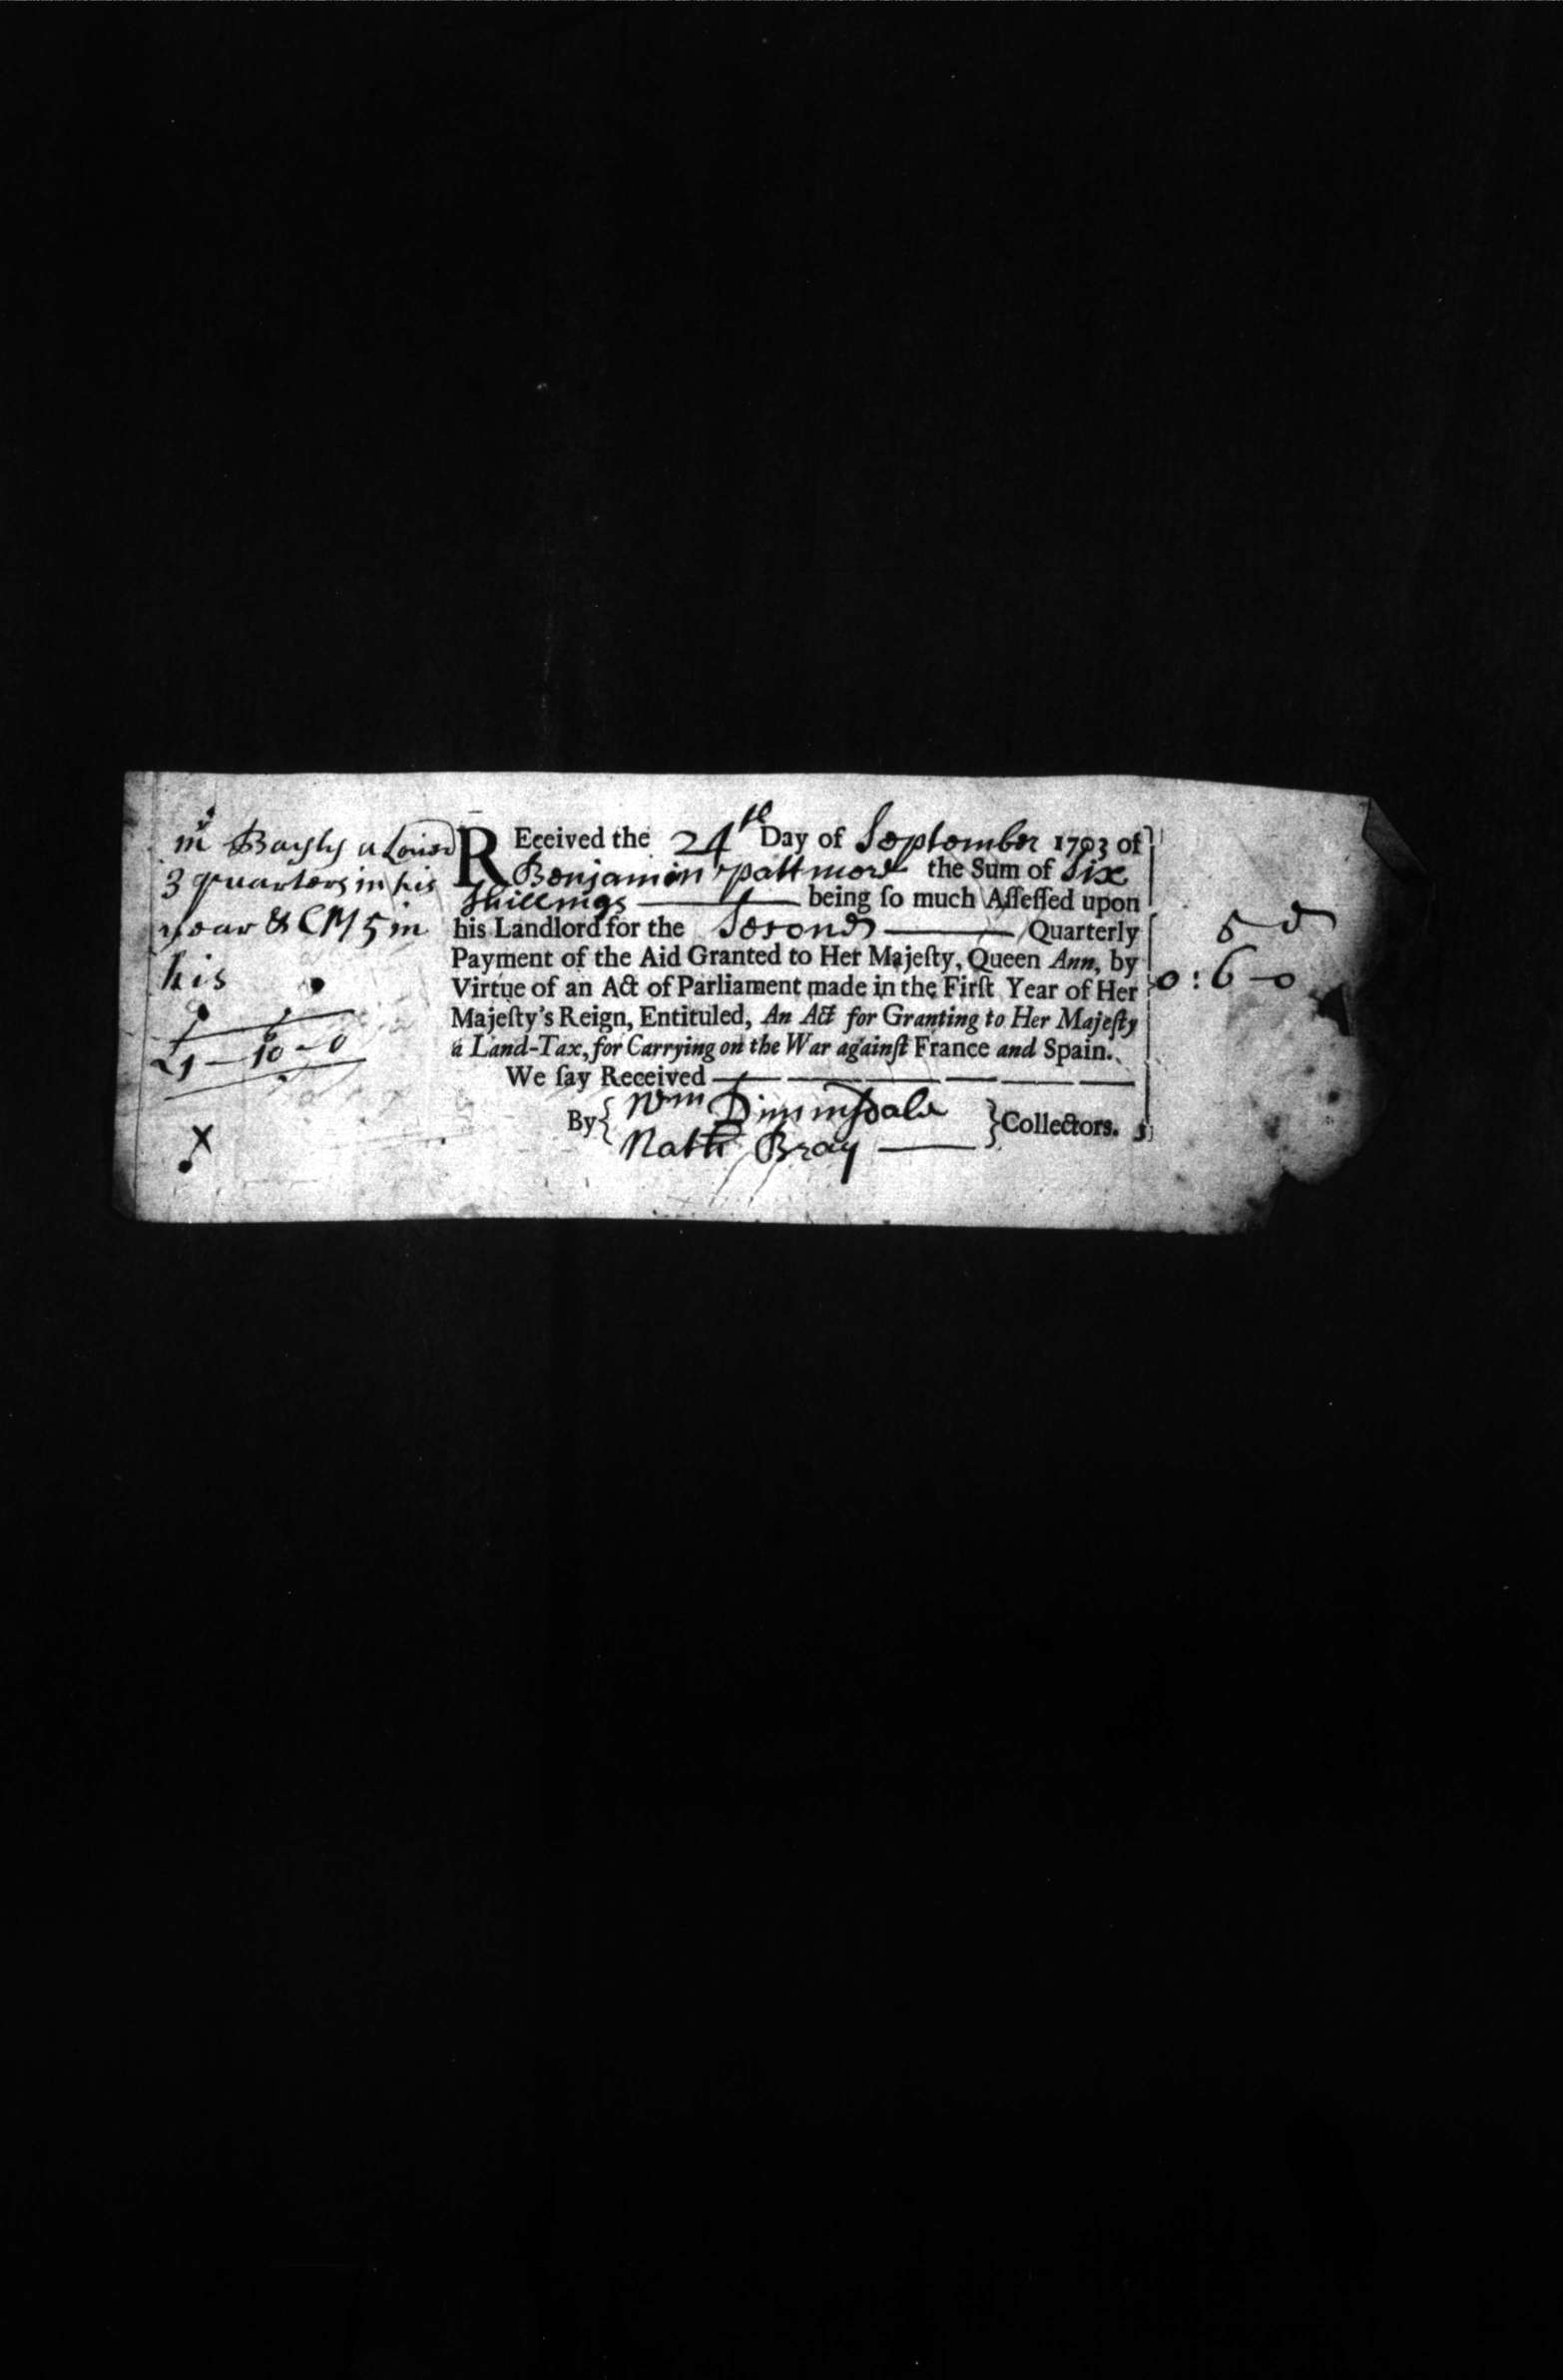 mr Bayly a Lowed
3 quarters in his
year & CM 5 in
his
1 - 10 - 0
x
REceived the 24th Day of September 1703 of
Benjamin pattmore the Sum of six
shillings being ſo much Aſſeſſed upon
his Landlord for the Second Quarterly
Payment of the Aid Granted to Her Majeſty, Queen Ann, by
Virtue of an Act of Parliament made in the Firſt Year of Her
Majeſty's Reign, Entituled, An Act for Granting to Her Majeſty
a Land-Tax, for Carrying on the War againſt France and Spain.
We ſay Received
By { Wm Dimmsdale } Collectors.
Nath Bray
s d
0 : 6 - 0